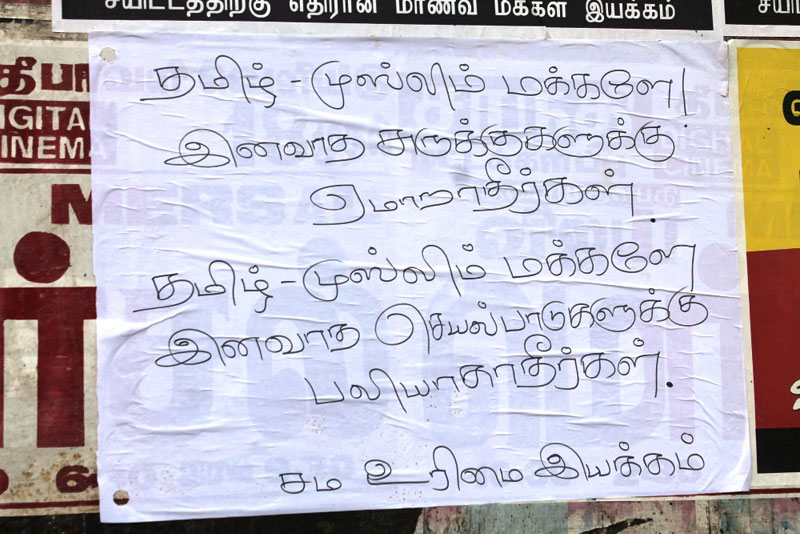 சயிட்டத்திற்கு எதிரான மாணவ மக்கள் இயக்கம்
தமிழ் - முஸ்லிம் மக்களே!
இனவாத கருத்துகளுக்கு
ஏமாறாதீர்கள்.
தமிழ் - முஸ்லிம் மக்களே
இனவாத செயல்பாடுகளுக்கு
பலியாகாதீர்கள்.
சம உரிமை இயக்கம்
DIGITAL
CINEMA